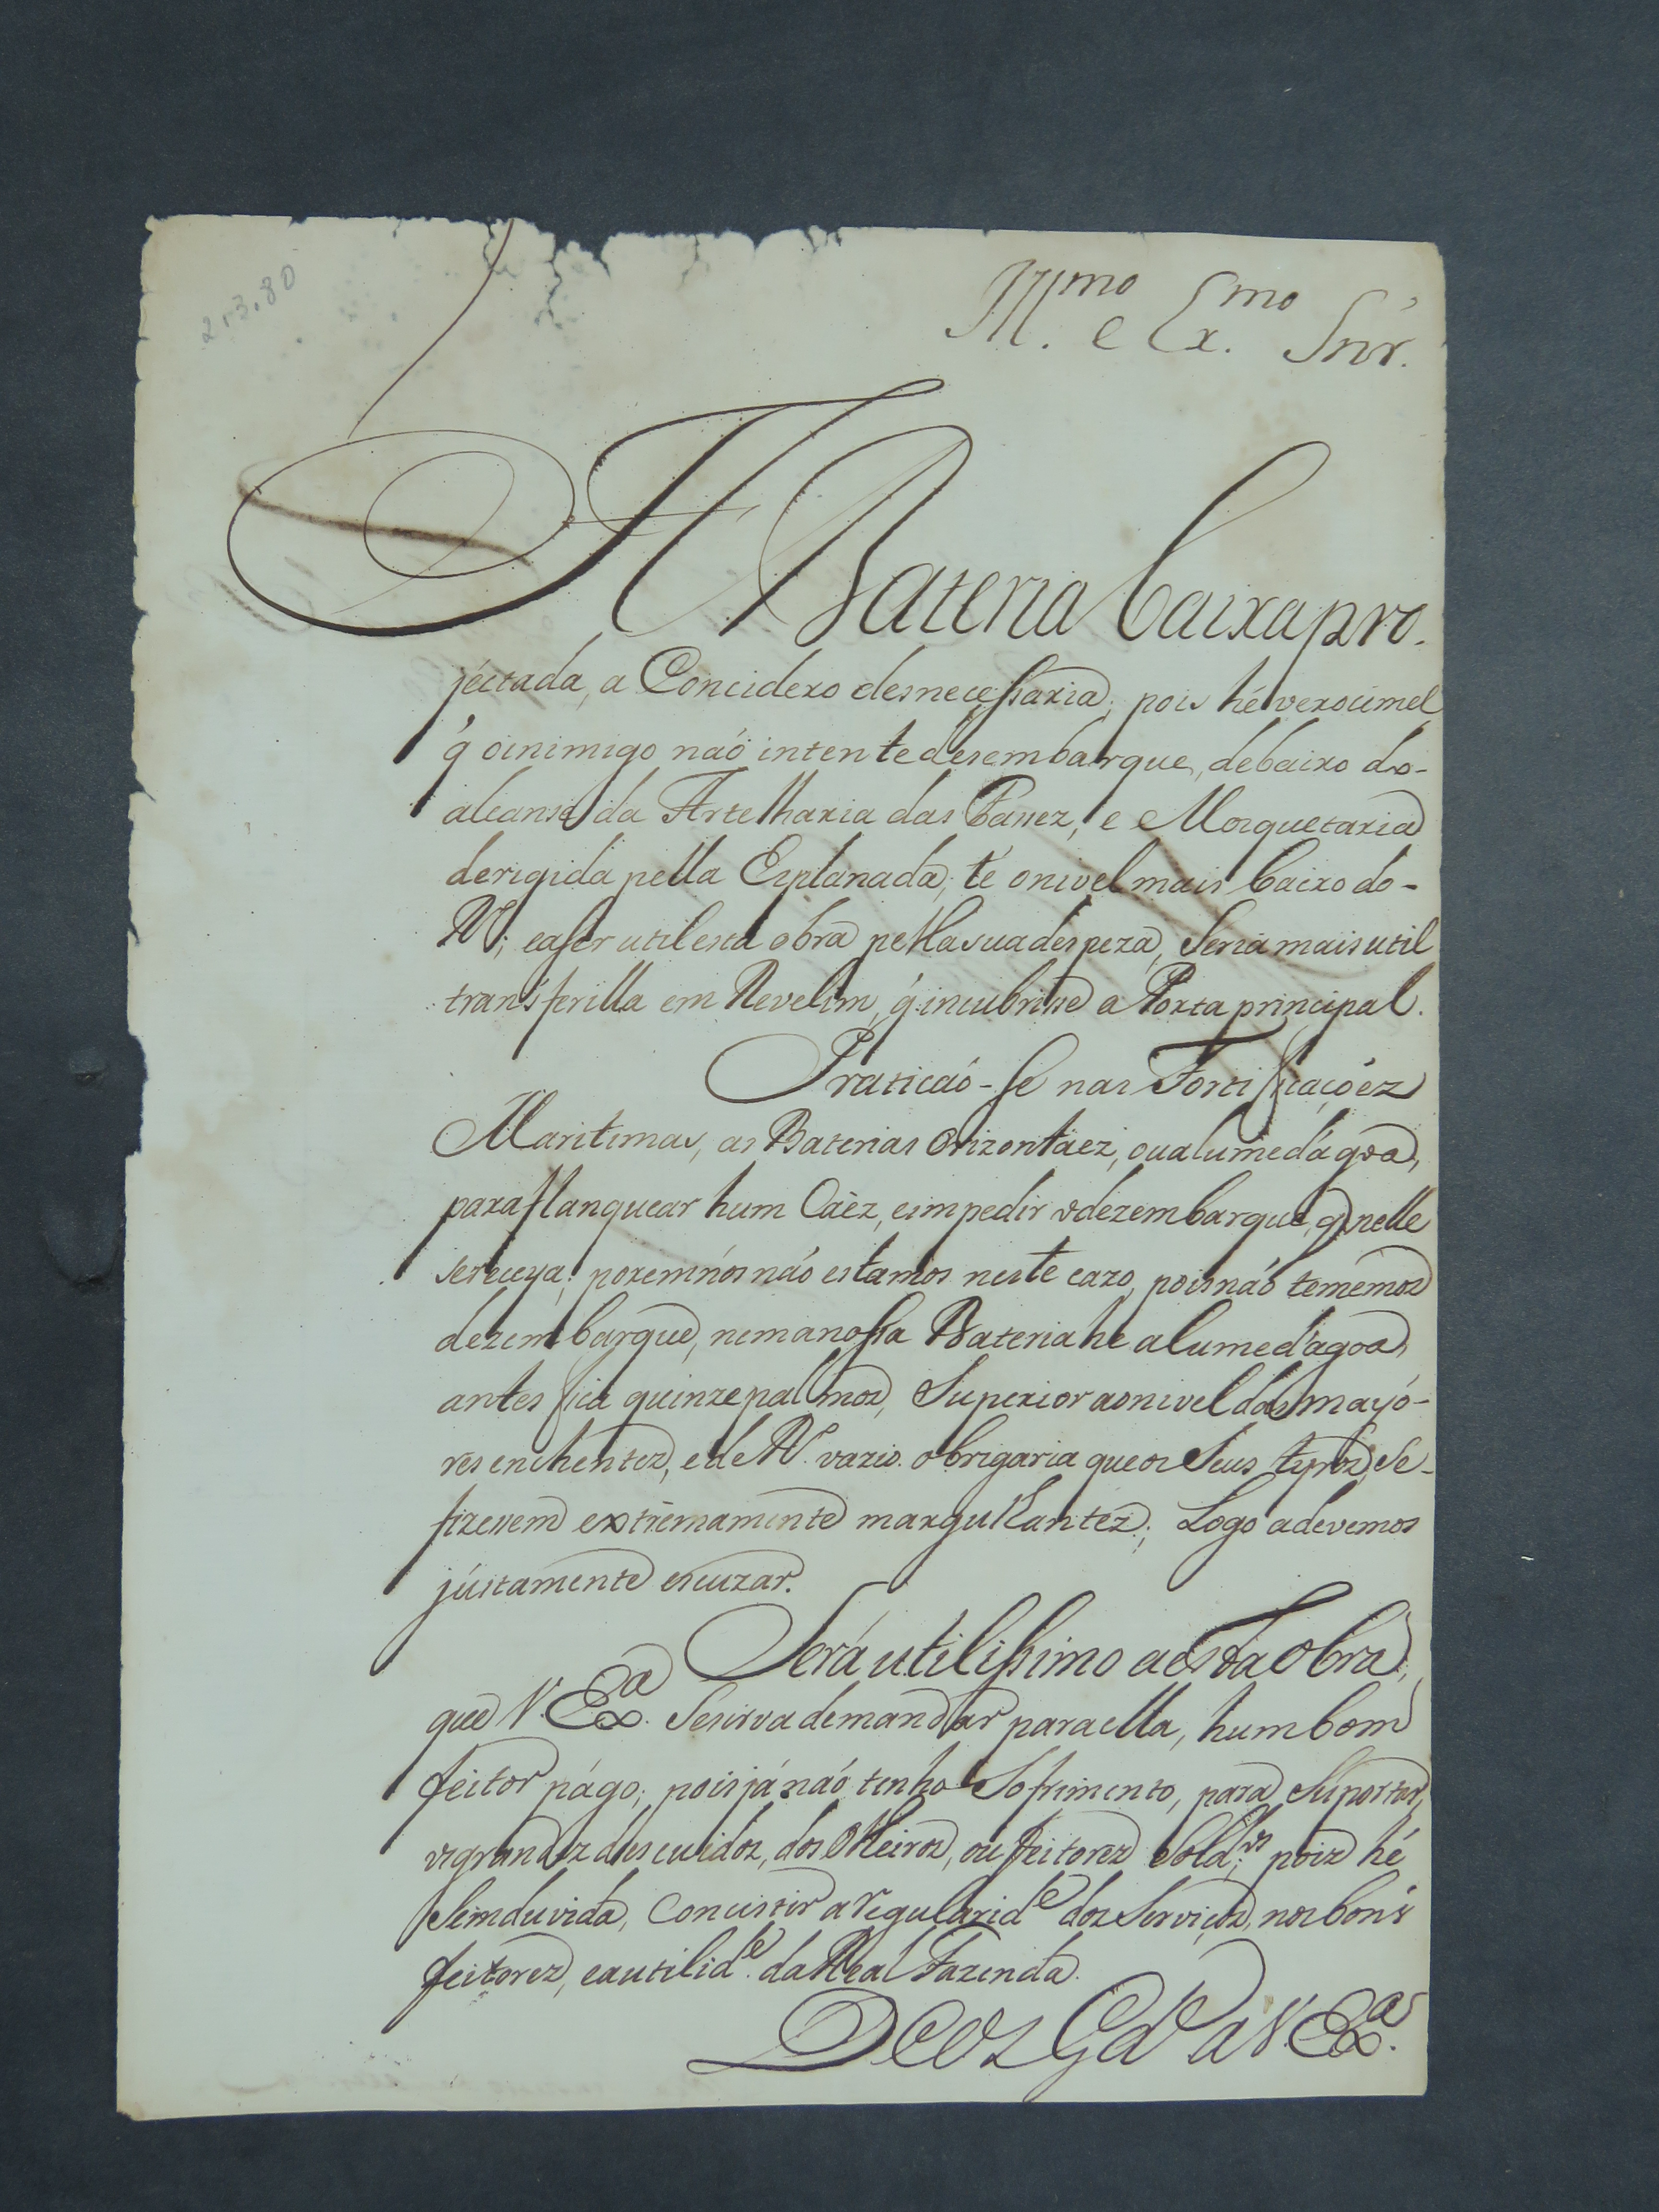 21,3,80
Ill.mo e Ex.mo Snr.
A Bateria baixa pro-
jectada, a Concidero desnecessaria; pois hé verocimel
q̃ o inimigo naó intente desembarque, debaixo do-
alcanse da Artelharia das Facez, e Mosquetaria
derigida pella Esplanada; té o nivel mais baixo do-
R.; e a ser util esta obra pella sua despeza, Seria mais util
transferilla em Revelim, q̃ incubrisse a Porta principal.
Praticaó-se nas Fortificaçóez
Maritimas, as Baterias Orizontáez, ou a lume d'ágoa,
para flanquear hum Cáèz, e impedir o dezembarque, q̃ nelle
se receya; porem nós náo estamos neste cazo, pois náo tememos
dezembarque, nem a nossa Bateria he a lume d'ágoa,
antes fica quinze palmos, Superior ao nivel das mayó-
res enchentez, e de R. vazio obrigaria que os Seus tyroz, Se-
fizessem extremamente margulhantez; Logo a devemos
jústamente escuzar.
Será utilissimo a esta Obra,
que V. Ex.a Se sirva de mandar para ella, hum bom
feitor págo; pois já náo tenho Sofrimento, para Suportar,
os grandez descuidoz, dos Olleiros, ou feitorez Sold.os; pois hé
Sem duvida, Concistir a regularid.e dos Serviços, nos bons
feitorez, e a utilid.e da Real Fazenda.
Deos G.de a V. Ex.a